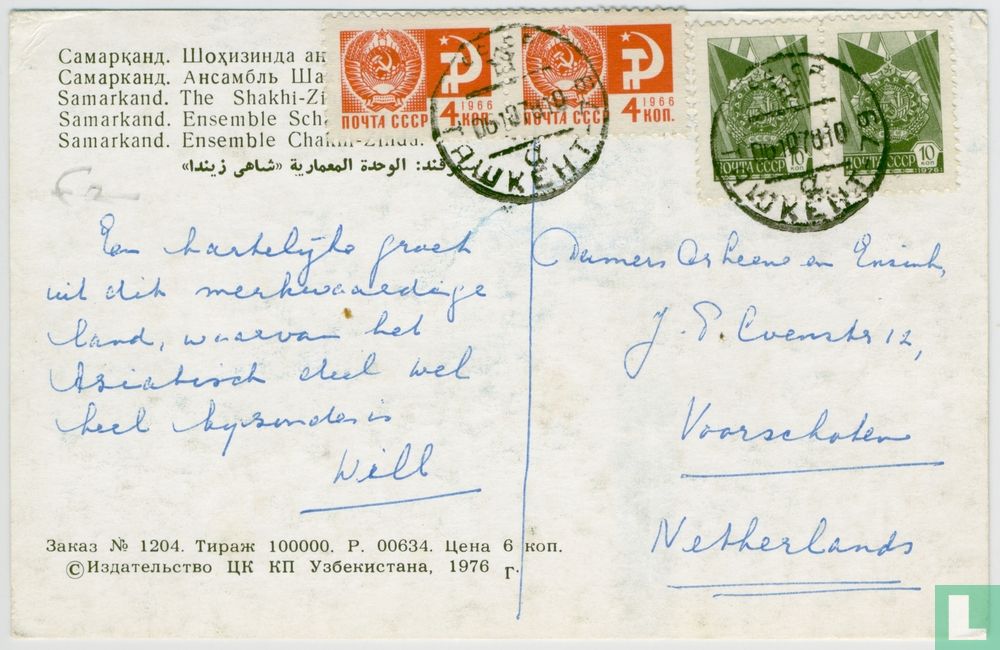 Самарқанд. Шоҳизинда ан
Самарканд. Ансамбль Ша
Samarkand. The Shakhi-Zi
Samarkand. Ensemble Scha
Samarkand. Ensemble Chakhi-Zinda.
قند: الوحدة المعمارية «شاهى زيندا»
1966
4 КОП.
ПОЧТА СССР
1966
4 КОП.
ПОЧТА СССР
ПОЧТА СССР 10 КОП
ПОЧТА СССР 10 КОП
1976
ТАШКЕНТ
ТАШКЕНТ
Een hartelijke groet
uit dit merkwaardige
land, waarvan het
Aziatisch deel wel
heel byzonder is
Will
Dames en Ensink,
J. P. 12,
Voorschoten
Netherlands
Заказ № 1204. Тираж 100000. Р. 00634. Цена 6 коп.
©Издательство ЦК КП Узбекистана, 1976 г.
L